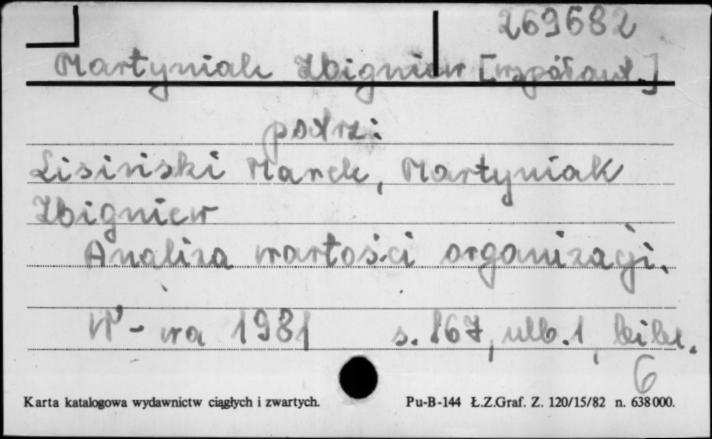 269682
Martyniak Zbigniew [współaut.]
patrz:
Lisiński Marek, Martyniak
Zbigniew
Analiza wartości organizacji.
W-wa 1981 s. 167, nlb. 1, bibl.
6
Karta katalogowa wydawnictw ciągłych i zwartych. Pu-B-144 Ł.Z.Graf. Z. 120/15/82 n. 638000.